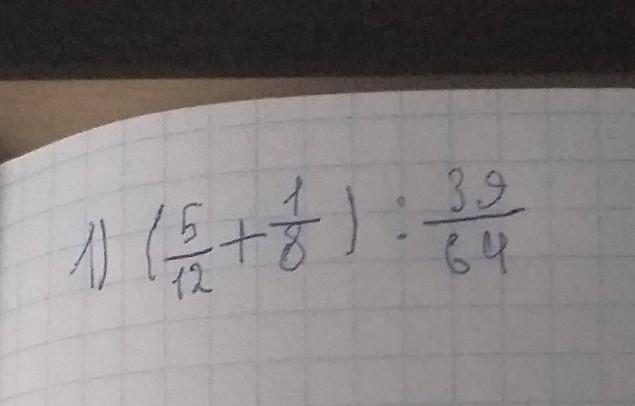 1) (5/12 + 1/8) : 39/64